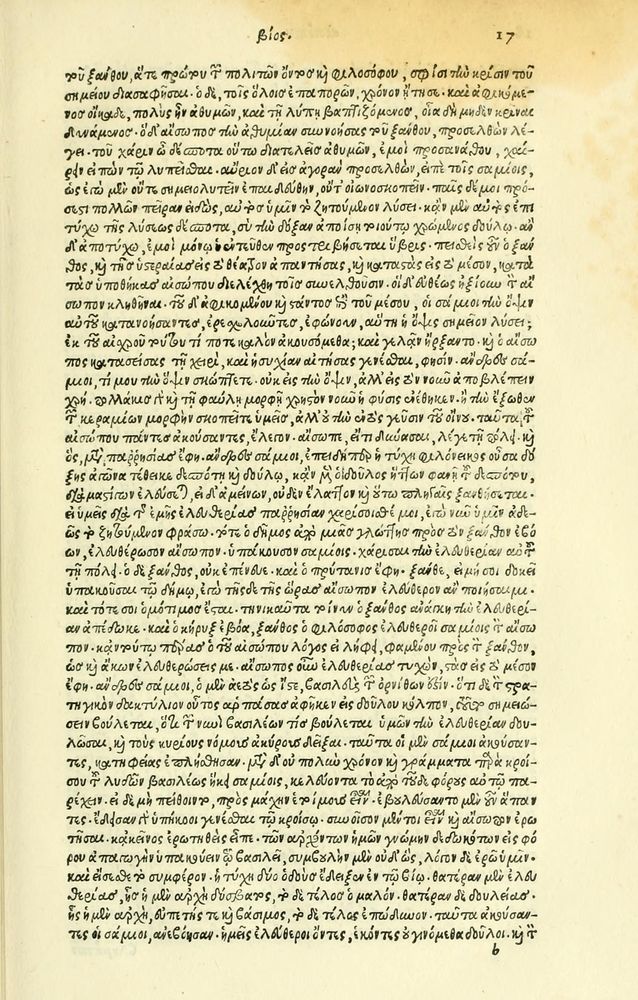 βίος. 17
τοῦ ξάνθου, ἅτε πρώτου τῶν πολιτῶν ὄντος καὶ φιλοσόφου, σφίσι τὴν κρίσιν τοῦ
σημείου διασαφῆσαι. ὁ δὲ, τοῖς ὅλοις ἐπαπορῶν, χρόνον ᾔτησε. καὶ ἀφικόμε-
νος οἴκαδε, πολὺς ἦν ἀθυμῶν, καὶ τῇ λύπῃ βαπτιζόμενος, οἷα δὴ μηδὲν κρῖναι
δυνάμενος. ὁ δ' αἴσωπος τὴν ἀθυμίαν συννοήσας τοῦ ξάνθου, προσελθὼν λέ-
γει. τοῦ χάριν ὦ δέσποτα οὕτω διατελεῖς ἀθυμῶν, ἐμοὶ προσανάθου, χαί-
ρειν εἰπὼν τῷ λυπεῖσθαι. αὔριον δ' εἰς ἀγορὰν προσελθὼν, εἰπὲ τοῖς σαμίοις,
ὡς ἐγὼ μὲν οὔτε σημειολυτεῖν ἐπαιδεύθην, οὔτ' οἰωνοσκοπεῖν. παῖς δέ μοι πρό-
σεστι πολλῶν πεῖραν εἰδὼς, αὐτὸς ὑμῖν τὸ ζητούμενον λύσει. κἂν μὲν αὐτὸς ἐπι
τύχω τῆς λύσεως δέσποτα, σὺ τὴν δόξαν ἀποίσῃ τοιούτῳ χρώμενος δούλῳ. ἂν
δ' ἀποτύχω, ἐμοὶ μόνῳ ἐντεῦθεν προστριβήσεται ὕβρις. πεισθεὶς οὖν ὁ ξάν-
θος, καὶ τῆς ὑστεραίας εἰς τὸ θέατρον ἀπαντήσας, καὶ καταστὰς εἰς τὸ μέσον, κατὰ
τὰς ὑποθήκας αἰσώπου διελέχθη τοῖς συνελθοῦσιν. οἱ δ' εὐθέως ἠξίουν τὸν αἴ-
σωπον κληθῆναι. τοῦ δ' ἀφικομένου καὶ στάντος ἐπὶ τοῦ μέσου, οἱ σάμιοι τὴν ὄψιν
αὐτοῦ κατανοήσαντες, ἐρεχολοῦντες, ἐφώνουν, αὕτη ἡ ὄψις σημεῖον λύσει;
ἐκ τοῦ αἰσχροῦ τούτου τί ποτε καλὸν ἀκουσόμεθα; καὶ γελᾶν ἤρξαντο. καὶ ὁ αἴσω
πος κατασείσας τῇ χειρὶ, καὶ ἡσυχίαν αἰτήσας γενέσθαι, φησίν. ἄνδρες σά-
μιοι, τί μου τὴν ὄψιν σκώπτετε. οὐκ εἰς ὄψιν, ἀλλ' εἰς τὸν νοῦν ἀποβλέπειν
χρή. πολλάκις γὰρ καὶ τῇ φαύλῃ μορφῇ χρηστὸν νοῦν ἡ φύσις ἐνέθηκεν. ἢ τὴν ἔξωθεν
τῶν κεραμίων μορφὴν σκοπεῖτε ὑμεῖς, ἀλλ' οὐ τὴν ἐντὸς γεῦσιν τοῦ οἴνου. ταῦτα τοῦ
αἰσώπου πάντες ἀκούσαντες, ἔλεγον. αἴσωπε, εἴ τι δύνασαι, λέγε τῇ πόλει. καὶ
ὃς, μετὰ παῤῥησίας ἔφη. ἄνδρες σάμιοι, ἐπειδήπερ ἡ τύχη φιλόνεικος οὖσα δό
ξης ἀγῶνα τέθεικε δεσπότῃ καὶ δούλῳ, κἂν μὲν ὁ δοῦλος ἥττων φανῇ τοῦ δεσπότου,
διὰ μαστίγων ἐλεύσεται, εἰ δ' ἀμείνων, οὐδὲν ἔλαττον καὶ οὕτω πληγαῖς ξανθήσεται.
εἰ ὑμεῖς διὰ τῆς ἐμῆς ἐλευθερίας παῤῥησίαν χαρίσοισθέ μοι, ἐγὼ νῦν ὑμῖν ἀδε-
ῶς τὸ ζητούμενον φράσω. τότε ὁ δῆμος ἀπὸ μιᾶς γλώττης πρὸς τὸν ξάνθον ἐβό
ων, ἐλευθέρωσον αἴσωπον. ὑπάκουσον σαμίοις. χάρισαι τὴν ἐλευθερίαν αὐτοῦ
τῇ πόλει. ὁ δὲ ξάνθος, οὐκ ἐπένευε. καὶ ὁ πρύτανις ἔφη. ξάνθε, εἰ μή σοι δοκεῖ
ὑπακοῦσαι τῷ δήμῳ, ἐγὼ τῆσδε τῆς ὥρας αἴσωπον ἐλευθερον ἀνποιήσαιμι.
καὶ τότε σοι ὁμότιμος ἔσται. τηνικαῦτα τοίνυν ὁ ξάνθος ἀνάγκῃ τὴν ἐλευθερί-
αν ἀπέδωκε. καὶ ὁ κήρυξ ἐβόα, ξάνθος ὁ φιλόσοφος ἐλευθεροῖ σαμίοις τὸν αἴσω
πον. κἂν τούτῳ πέρας ὁ τοῦ αἰσώπου λόγος εἰλήφει, φαμένου πρὸς τὸν ξάνθον,
ὡς καὶ ἄκων ἐλευθερώσεις με. αἴσωπος οὖν ἐλευθερίας τυχὼν, στὰς εἰς τὸ μέσον
ἔφη. ἄνδρες σάμιοι, ὁ μὲν ἀετὸς ὡς ἴστε, βασιλεὺς τῶν ὀρνίθων ἐστίν. ὅτι δὲ τὸν στρα-
τηγικὸν δακτύλιον οὗτος ἁρπάσας ἀφῆκεν εἰς δούλου κόλπον, τοῦτο σημειώ-
σειν βούλεται, ὅτι τῶν νῦν βασιλέων τίς βούλεται ὑμῶν τὴν ἐλευθερίαν δου-
λῶσαι, καὶ τοὺς κυρίους νόμους ἀκύρους δεῖξαι. ταῦτα οἱ μὲν σάμιοι ἀκούσαν-
τες, κατηφείας ἐπλήσθησαν. μετὰ δ' οὐ πολὺν χρόνον καὶ γράμματα παρὰ κροί-
σου τοῦ λυδῶν βασιλέως ἧκε σαμίοις, κελεύοντα τὸ ἀπὸ τοῦδε φόρους αὐτῷ πα-
ρέχειν. εἰ δὲ μὴ πείθοιντο, πρὸς μάχην ἑτοίμους εἶναι. ἐβουλεύσαντο μὲν οὖν ἅπαν
τες. ἔδεισαν γὰρ ὑπήκοοι γενέσθαι τῷ κροίσῳ. συνοῖσον μέντοι εἶναι καὶ αἴσωπον ἐρω
τῆσαι. κἀκεῖνος ἐρωτηθεὶς εἶπε. τῶν ἀρχόντων ἡμῶν γνώμην δεδωκότων εἰς φό
ρου ἀπαγωγὴν ὑπακούειν τῷ βασιλεῖ, συμβουλὴν μὲν οὐδ' ὡς, λόγον δὲ ἐρῶ ὑμῖν.
καὶ εἴσεσθε τὸ συμφέρον. ἡ τύχη δύο ὁδοὺς ἔδειξεν ἐν τῷ βίῳ. θατέραν μὲν ἐλευ
θερίας, ἧς ἡ μὲν ἀρχὴ δύσβατος, τὸ δὲ τέλος ὁμαλόν. θατέραν δὲ δουλείας.
ἧς ἡ μὲν ἀρχὴ, εὐπετής τε καὶ βάσιμος, τὸ δὲ τέλος ἐπώδυνον. ταῦτα ἀκούσαν-
τες οἱ σάμιοι, ἀνεβόησαν. ἡμεῖς ἐλεύθεροι ὄντες, ἑκόντες οὐ γινόμεθα δοῦλοι. καὶ τὸν
b